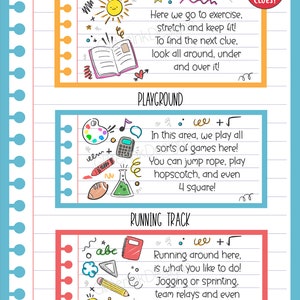 CLUES!
Here we go to exercise,
stretch and keep fit!
To find the next clue,
look all around, under
and over it!
PLAYGROUND
In this area, we play all
sorts of games here!
You can jump rope, play
hopscotch, and even
4 square!
RUNNING TRACK
abc
Running around here,
is what you like to do!
Jogging or sprinting,
team relays and even